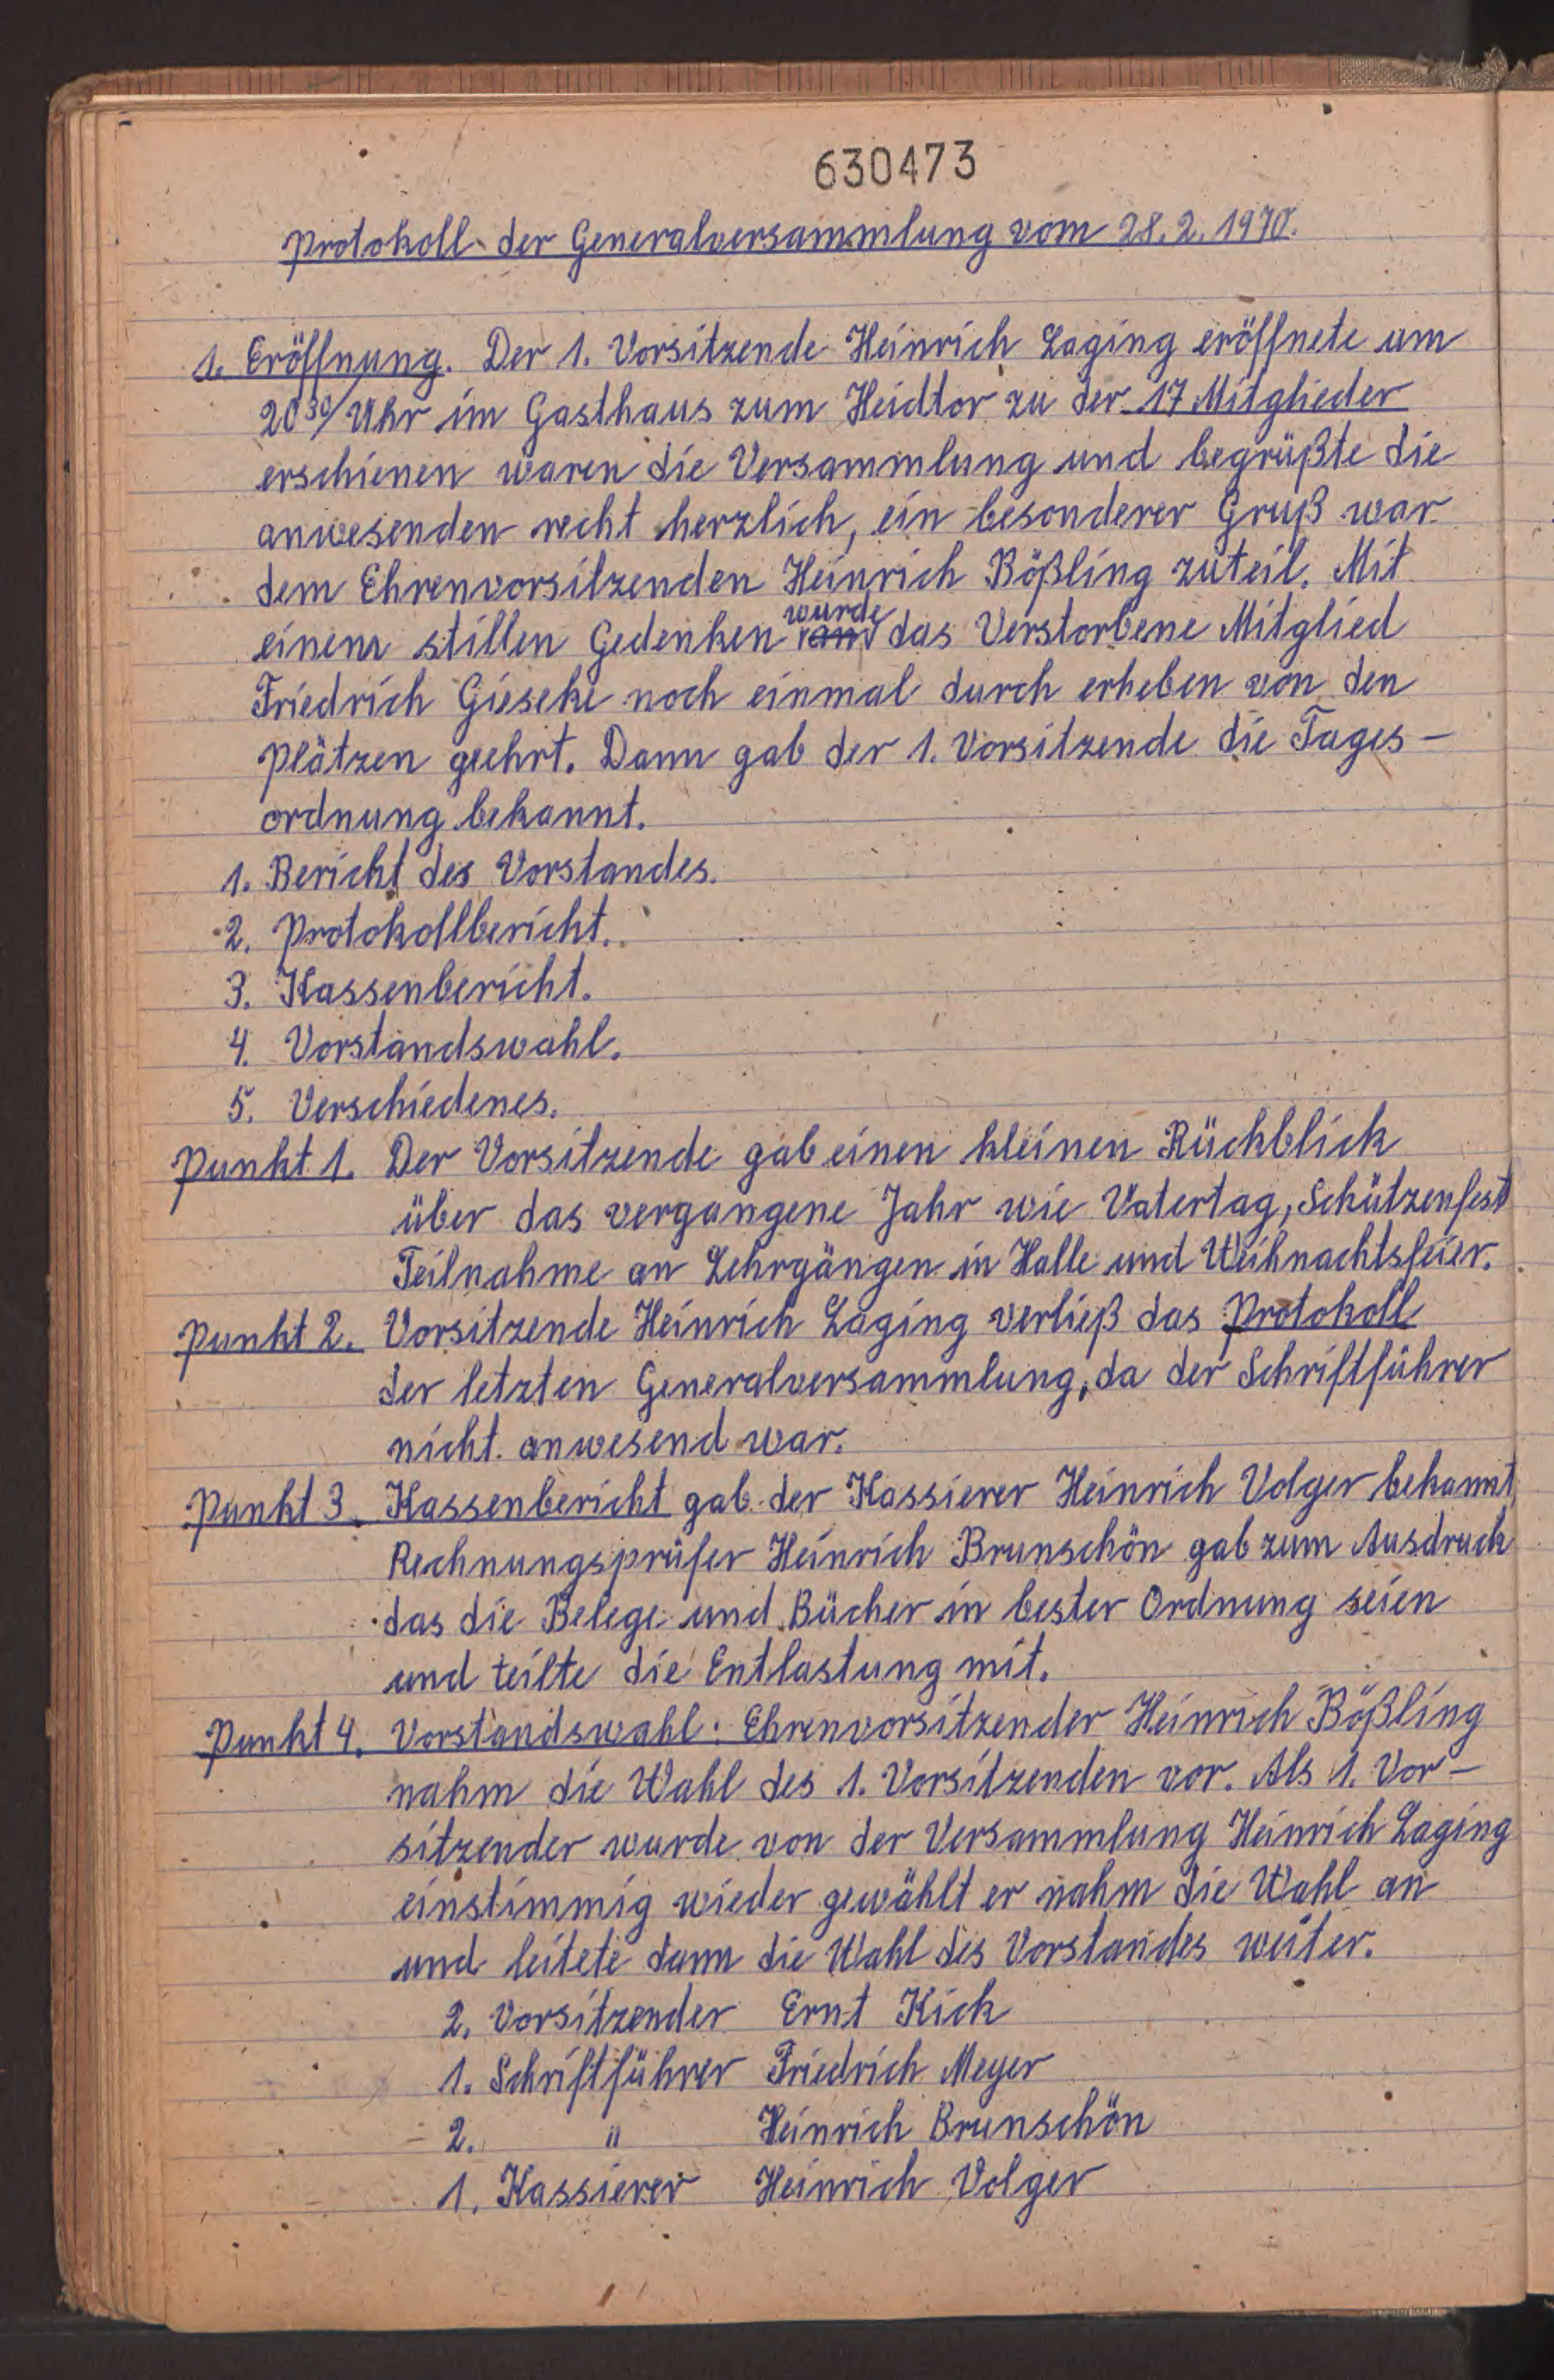 630473
Protokoll der Generalversammlung vom 28.2.1970.
1. Eröffnung. Der 1. Vorsitzende Heinrich Laging eröffnete um
20³⁰/ Uhr im Gasthaus zum Heidtor zu der 17 Mitglieder
erschienen waren die Versammlung und begrüßte die
anwesenden recht herzlich, ein besonderer Gruß war
dem Ehrenvorsitzenden Heinrich Bößling zuteil. Mit
einem stillen Gedenken wurde das Verstorbene Mitglied
Friedrich Gieseke noch einmal durch erheben von den
Plätzen geehrt. Dann gab der 1. Vorsitzende die Tages-
ordnung bekannt.
1. Bericht des Vorstandes.
2. Protokollbericht.
3. Kassenbericht.
4. Vorstandswahl.
5. Verschiedenes.
Punkt 1. Der Vorsitzende gab einen kleinen Rückblick
über das vergangene Jahr wie Vatertag, Schützenfest
Teilnahme an Lehrgängen in Halle und Weihnachtsfeier.
Punkt 2. Vorsitzende Heinrich Laging verließ das Protokoll
der letzten Generalversammlung, da der Schriftführer
nicht anwesend war.
Punkt 3. Kassenbericht gab der Kassierer Heinrich Volger bekannt
Rechnungsprüfer Heinrich Brunschön gab zum Ausdruck
das die Belege und Bücher in bester Ordnung seien
und teilte die Entlastung mit.
Punkt 4. Vorstandswahl: Ehrenvorsitzender Heinrich Bößling
nahm die Wahl des 1. Vorsitzenden vor. Als 1. Vor-
sitzender wurde von der Versammlung Heinrich Laging
einstimmig wieder gewählt er nahm die Wahl an
und leitete dann die Wahl des Vorstandes weiter.
2. Vorsitzender Ernt Kick
1. Schriftführer Friedrich Meyer
2. " Heinrich Brunschön
1. Kassierer Heinrich Volger